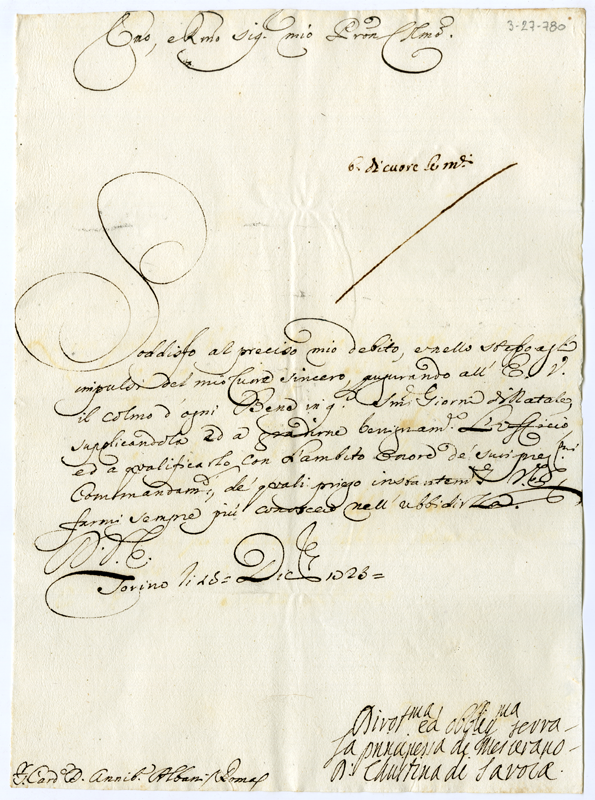 3-27-780
Emo, e Rmo Sigr. mio Pron Clmo.
6. di cuore le md.
Soddisfo al preciso mio debito, e nello stesso agli
impulsi del mio cuore sincero, augurando all' E. V.
il colmo d'ogni Bene in q.i Smi Giorni di Natale,
supplicandola ed a gradirne benignam.te L'Ufficio
ed a qualificarlo con l'ambito onore de' suoi pre.mi
Commandam.ti, de' quali priego instantem.te
farmi sempre più conoscere nell' ubbidirLa.
D. V. E.
Torino li 15= Dic.re 1723=
Divot.ma, ed obblig.ma serva
la principessa di Messerano
D. Christina di Savoia
S. Card. D. Annib. Albani Roma